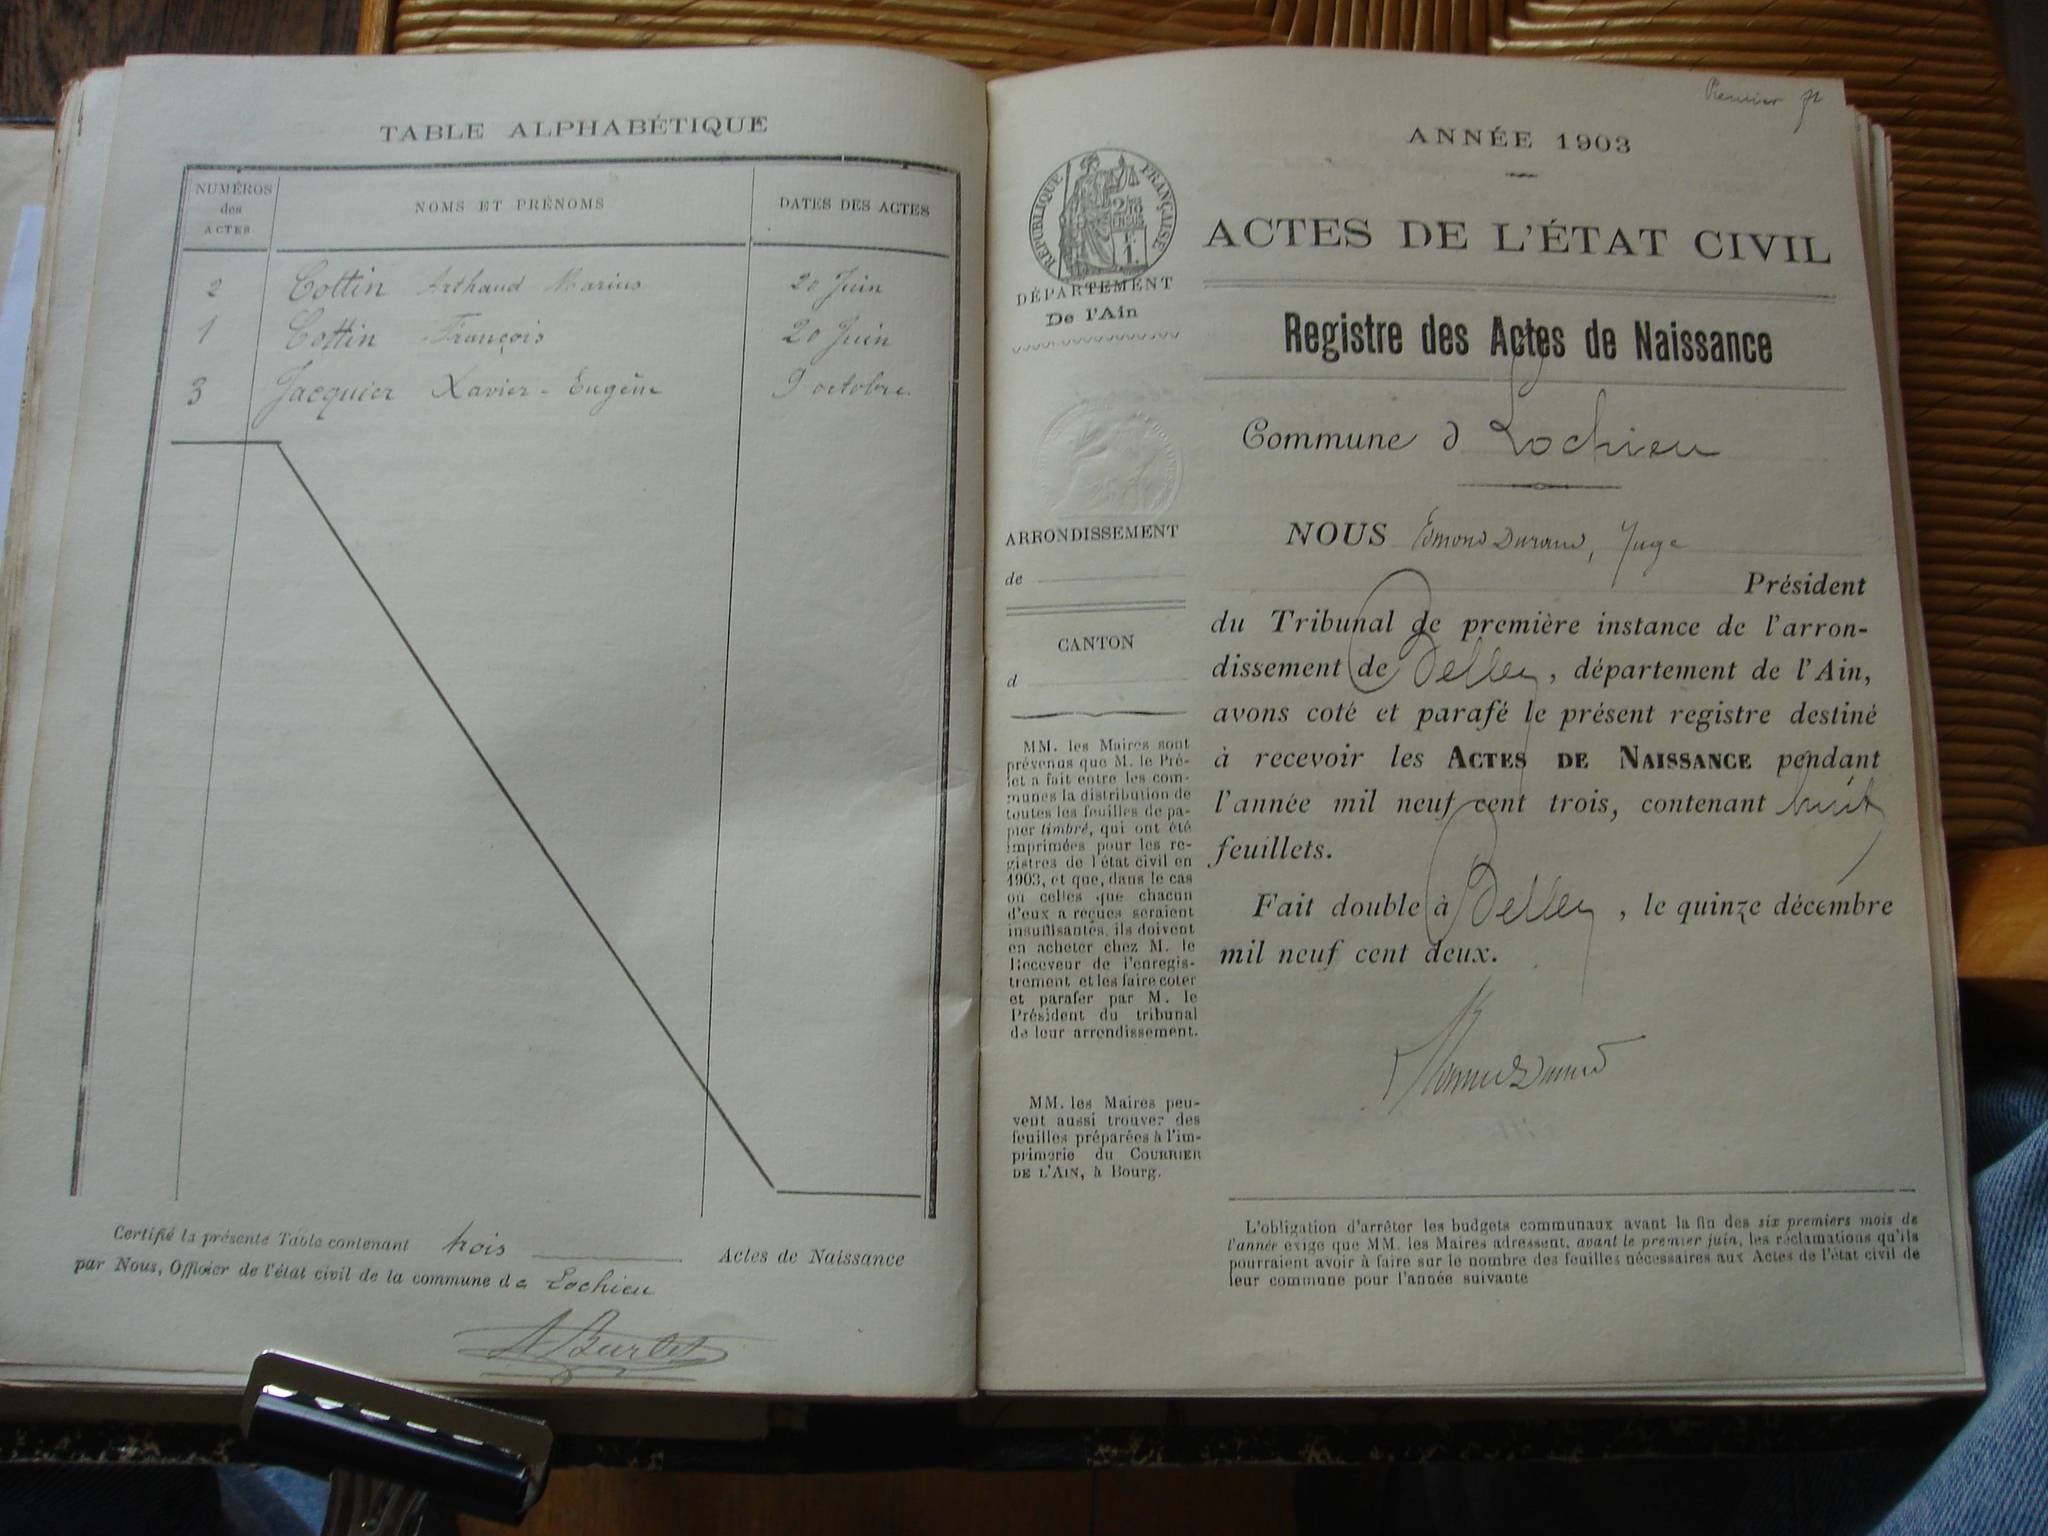 TABLE ALPHABÉTIQUE
NUMÉROS des ACTES
NOMS ET PRÉNOMS
DATES DES ACTES
2 Cottin Arthaud Marius 20 Juin
1 Cottin François 20 Juin
3 Jacquier Xavier-Eugène 9 octobre
Certifié la présente Table contenant trois Actes de Naissance
par Nous, Officier de l'état civil de la commune de Lochieu
A Burlet
Premier
ANNÉE 1903
RÉPUBLIQUE FRANÇAISE
ACTES DE L'ÉTAT CIVIL
DÉPARTEMENT
De l'Ain
Registre des Actes de Naissance
Commune d Lochieu
ARRONDISSEMENT
de
CANTON
d
MM. les Maires sont
prévenus que M. le Pré-
fet a fait entre les com-
munes la distribution de
toutes les feuilles de pa-
pier timbré, qui ont été
imprimées pour les re-
gistres de l'état civil en
1903, et que, dans le cas
où celles que chacun
d'eux a reçues seraient
insuffisantes, ils doivent
en acheter chez M. le
Receveur de l'enregis-
trement et les faire coter
et parafer par M. le
Président du tribunal
de leur arrondissement.
MM. les Maires peu-
vent aussi trouver des
feuilles préparées à l'im-
primerie du COURRIER
DE L'AIN, à Bourg.
NOUS Edmond Durand, Juge
Président
du Tribunal de première instance de l'arron-
dissement de Belley, département de l'Ain,
avons coté et parafé le présent registre destiné
à recevoir les ACTES DE NAISSANCE pendant
l'année mil neuf cent trois, contenant huit
feuillets.
Fait double à Belley, le quinze décembre
mil neuf cent deux.
L'obligation d'arrêter les budgets communaux avant la fin des six premiers mois de
l'année exige que MM. les Maires adressent, avant le premier juin, les réclamations qu'ils
pourraient avoir à faire sur le nombre des feuilles nécessaires aux Actes de l'état civil de
leur commune pour l'année suivante